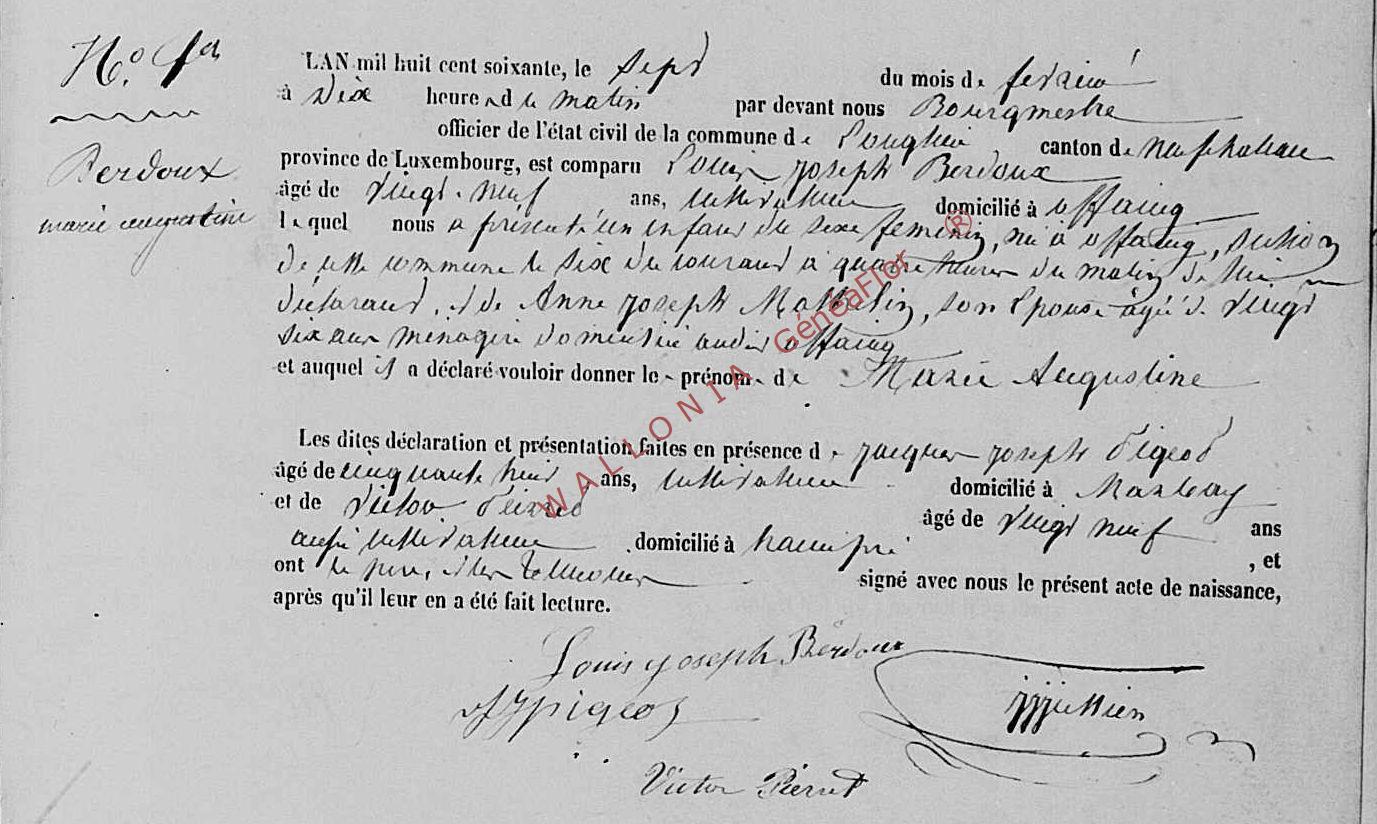 No. 9
Berdoux
marie augustine
L'AN mil huit cent soixante, le sept du mois de fevrier
à dix heures du matin par devant nous Bourgmestre
officier de l'état civil de la commune de Longlier canton de neufchateau
province de Luxembourg, est comparu Louis joseph Berdoux
âgé de vingt-neuf ans, cultivateur domicilié à offaing
lequel nous a présenté un enfant du sexe feminin, né à offaing, section
de cette commune le six du courant à quatre heures du matin de lui
déclarant, et de Anne joseph Mathelin, son épouse agée de vingt
six ans menagère domiciliée audit offaing
et auquel il a déclaré vouloir donner les prénoms de Marie Augustine
Les dites déclaration et présentation faites en présence de jacques joseph Pigeot
âgé de cinquante huit ans, cultivateur domicilié à Massul
et de Victor Pierret âgé de vingt neuf ans
aussi cultivateur domicilié à hamipré, et
ont le père, et les témoins signé avec nous le présent acte de naissance,
après qu'il leur en a été fait lecture.
Louis joseph Bérdoux
JJ pigeot
Victor Pierret
WALLONIA GénéaFlor ®